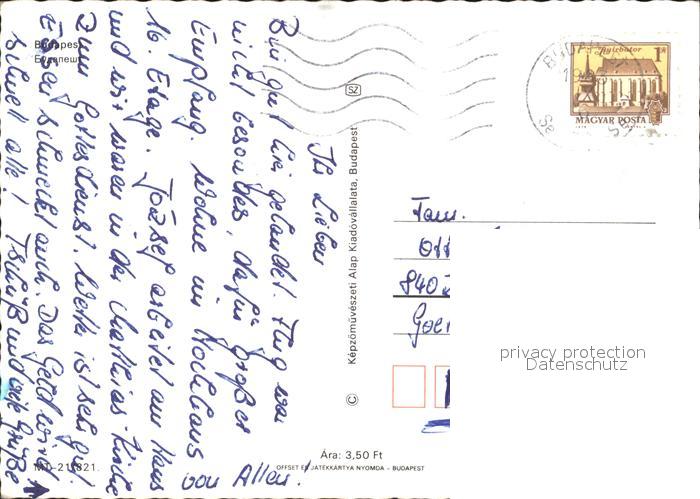 Ihr Lieben
Bin gut hin gelandet. Flug war
nicht besonders, dafür großer
Empfang. Wohne im Hochhaus
16. Etage. József arbeitet am Haus
und wir waren in der Matthias-Kirche
zum Gottesdienst. Wetter ist sehr gut
Essen schmeckt auch. Das Geld wird
schnell alle! Tschüß und viele Grüße
von Allen!
Budapest
Будапешт
MD-21/821.
SZ
© Képzőművészeti Alap Kiadóvállalata, Budapest
Ára: 3,50 Ft
OFFSET ÉS JÁTÉKKÁRTYA NYOMDA - BUDAPEST
BUDAPEST
Nyírbátor 1 Ft
MAGYAR POSTA
Fam.
Ott
840
Goe
privacy protection
Datenschutz